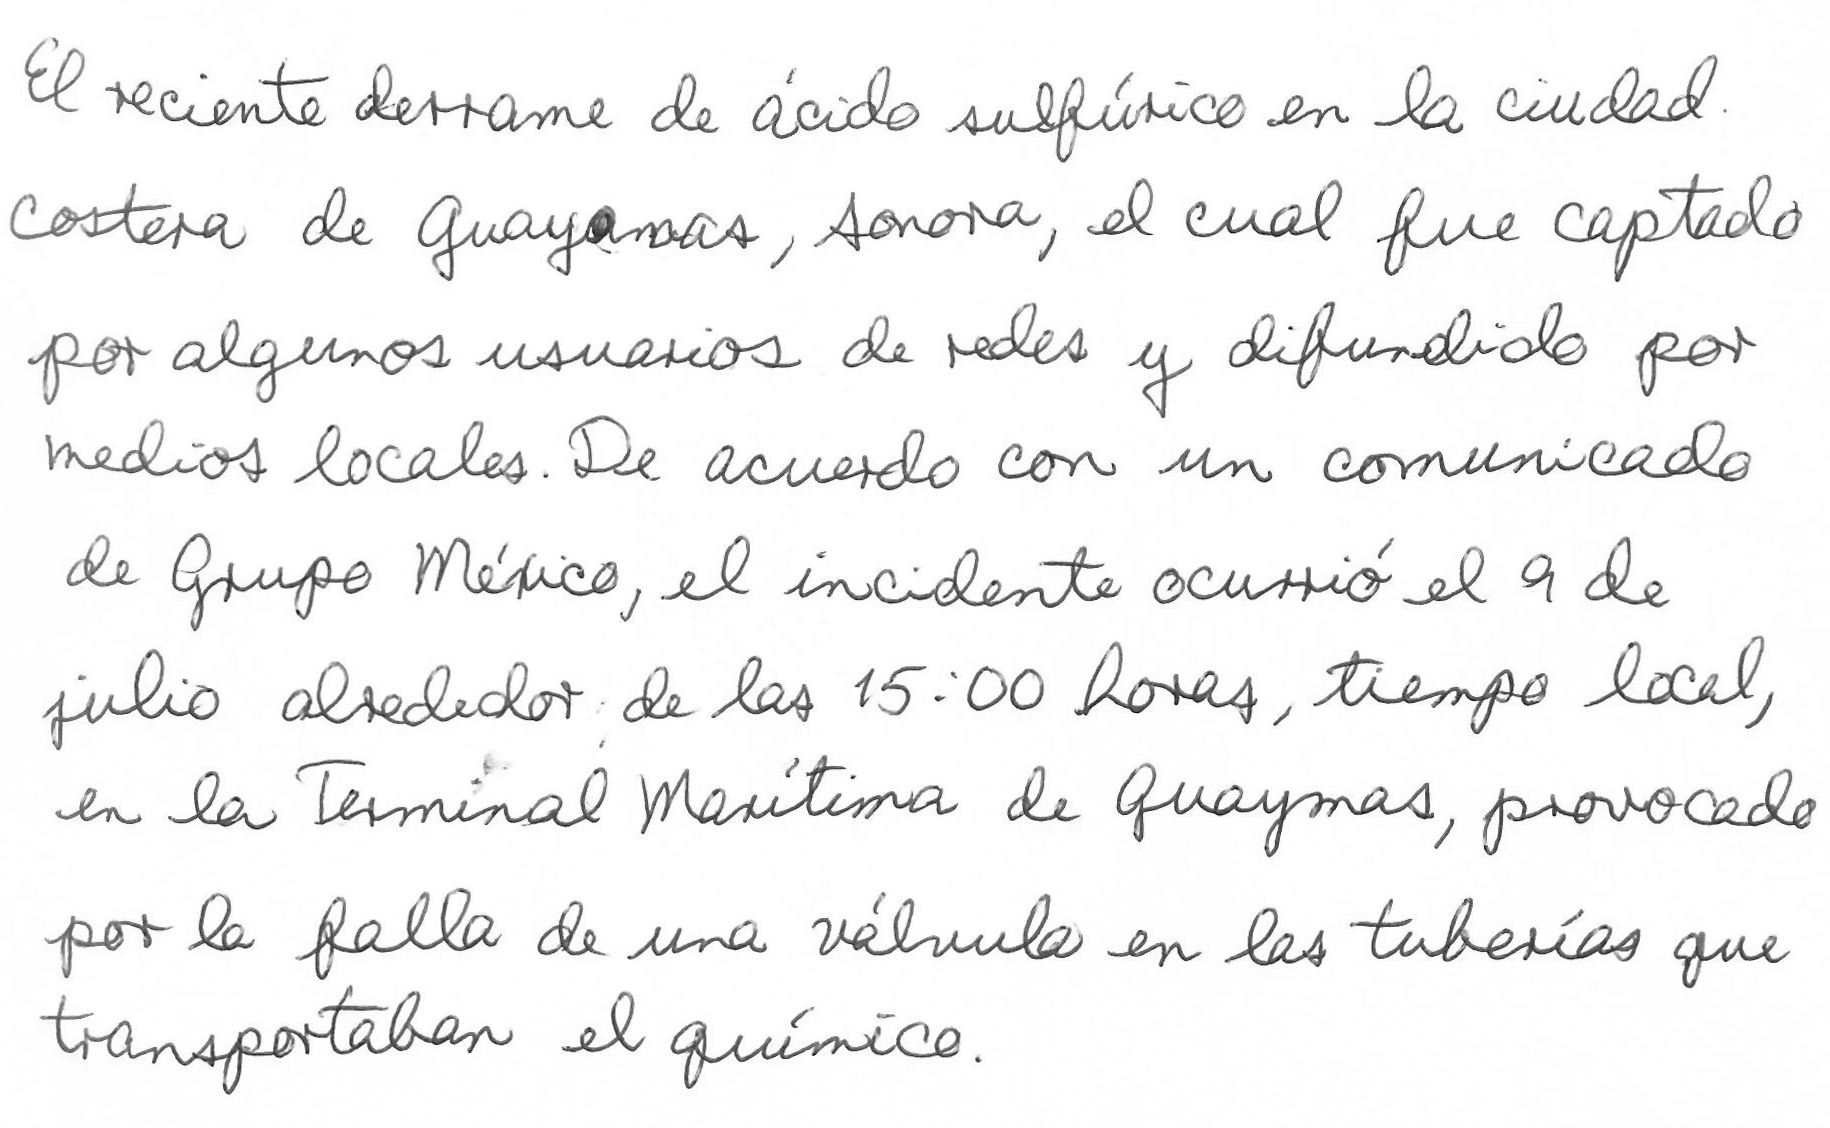 El reciente derrame de ácido sulfúrico en la ciudad
costera de Guayamas, Sonora, el cual fue captado
por algunos usuarios de redes y difundido por
medios locales. De acuerdo con un comunicado
de Grupo México, el incidente ocurrió el 9 de
julio alrededor de las 15:00 horas, tiempo local,
en la Terminal Marítima de Guaymas, provocado
por la falla de una válvula en las tuberías que
transportaban el químico.